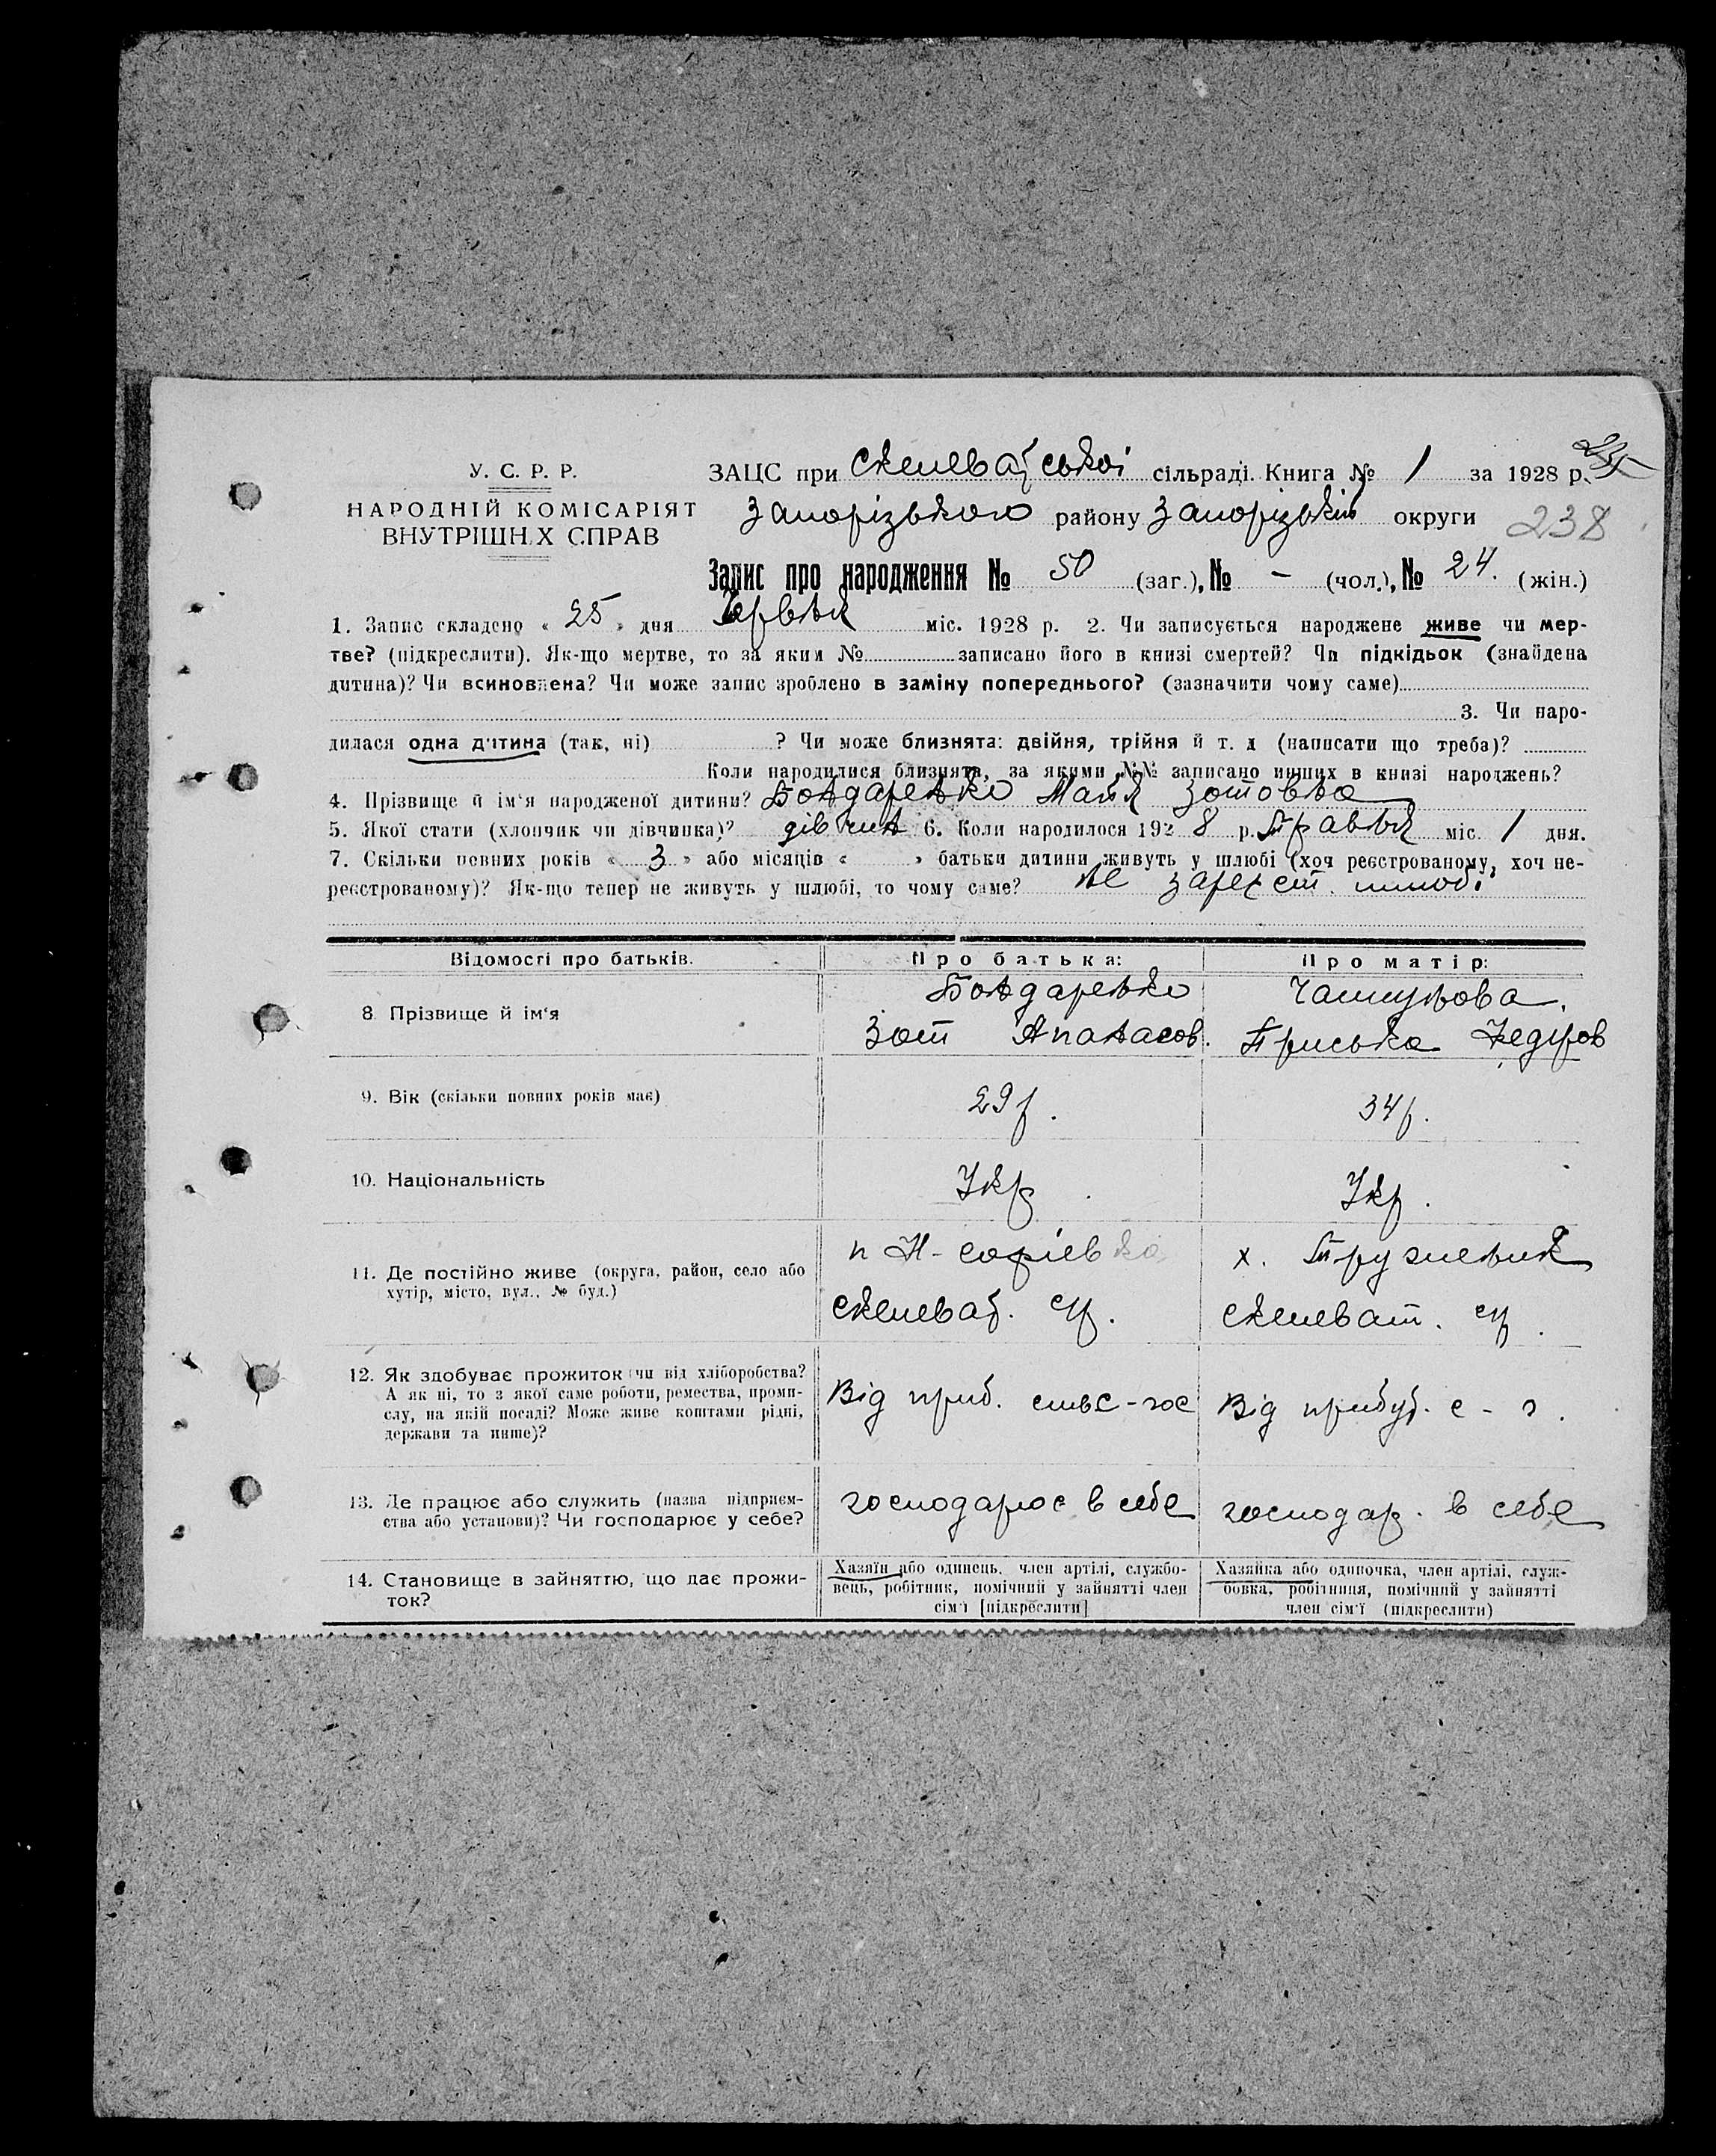 У. С. Р. Р.
НАРОДНІЙ КОМІСАРІЯТ
ВНУТРІШНІХ СПРАВ
ЗАЦС при Скелеватської сільраді. Книга № 1 за 1928 р.
Запорізького району Запорізької округи 238
Запис про народження № 50 (заг.), № - (чол.), № 24. (жін.)
1. Запис складено « 25 » дня Червня міс. 1928 р. 2. Чи записується народжене живе чи мер-
тве? (підкреслити). Як-що мертве, то за яким № записано його в книзі смертей? Чи підкідьок (знайдена
дитина)? Чи всиновлена? Чи може запис зроблено в заміну попереднього? (зазначити чому саме)
3. Чи наро-
дилася одна дитина (так, ні) ? Чи може близнята: двійня, трійня й т. д (написати що треба)?
Коли народилися близнята, за якими №№ записано инших в книзі народжень?
4. Прізвище й ім'я народженої дитини? Бондаренко Майя Зотовна
5. Якої стати (хлопчик чи дівчинка)? дівчина 6. Коли народилося 192 8 р. Травня міс. 1 дня.
7. Скільки повних років « 3 » або місяців « » батьки дитини живуть у шлюбі (хоч реєстрованому, хоч не-
реєстрованому)? Як-що тепер не живуть у шлюбі, то чому саме? не зареєст. шлюбі
Відомості про батьків.
Про батька:
Про матір:
8. Прізвище й ім'я
Бондаренко
Зот Апанасов.
Приська Федиров
9. Вік (скільки повних років має)
29 р.
34 р.
10. Національність
Укр.
Укр.
11. Де постійно живе (округа, район, село або
хутір, місто, вул., № буд.)
п Н-Софіевка
Скелеват. с/р.
х.
Скелеват. с/р.
12. Як здобуває прожиток (чи від хліборобства?
А як ні, то з якої саме роботи, ремества, проми-
слу, на якій посаді? Може живе коштами рідні,
держави та инше)?
Від приб. сильс-гос
Від прибут. с - г.
13. Де працює або служить (назва підприєм-
ства або установи)? Чи господарює у себе?
господарює в себе
господар. в себе
14. Становище в зайняттю, що дає прожи-
ток?
Хазяїн або одинець, член артілі, службо-
вець, робітник, помічний у зайнятті член
сім'ї [підкреслити]
Хазяйка або одиночка, член артілі, служ-
бовка, робітниця, помічний у зайнятті
член сім'ї (підкреслити)